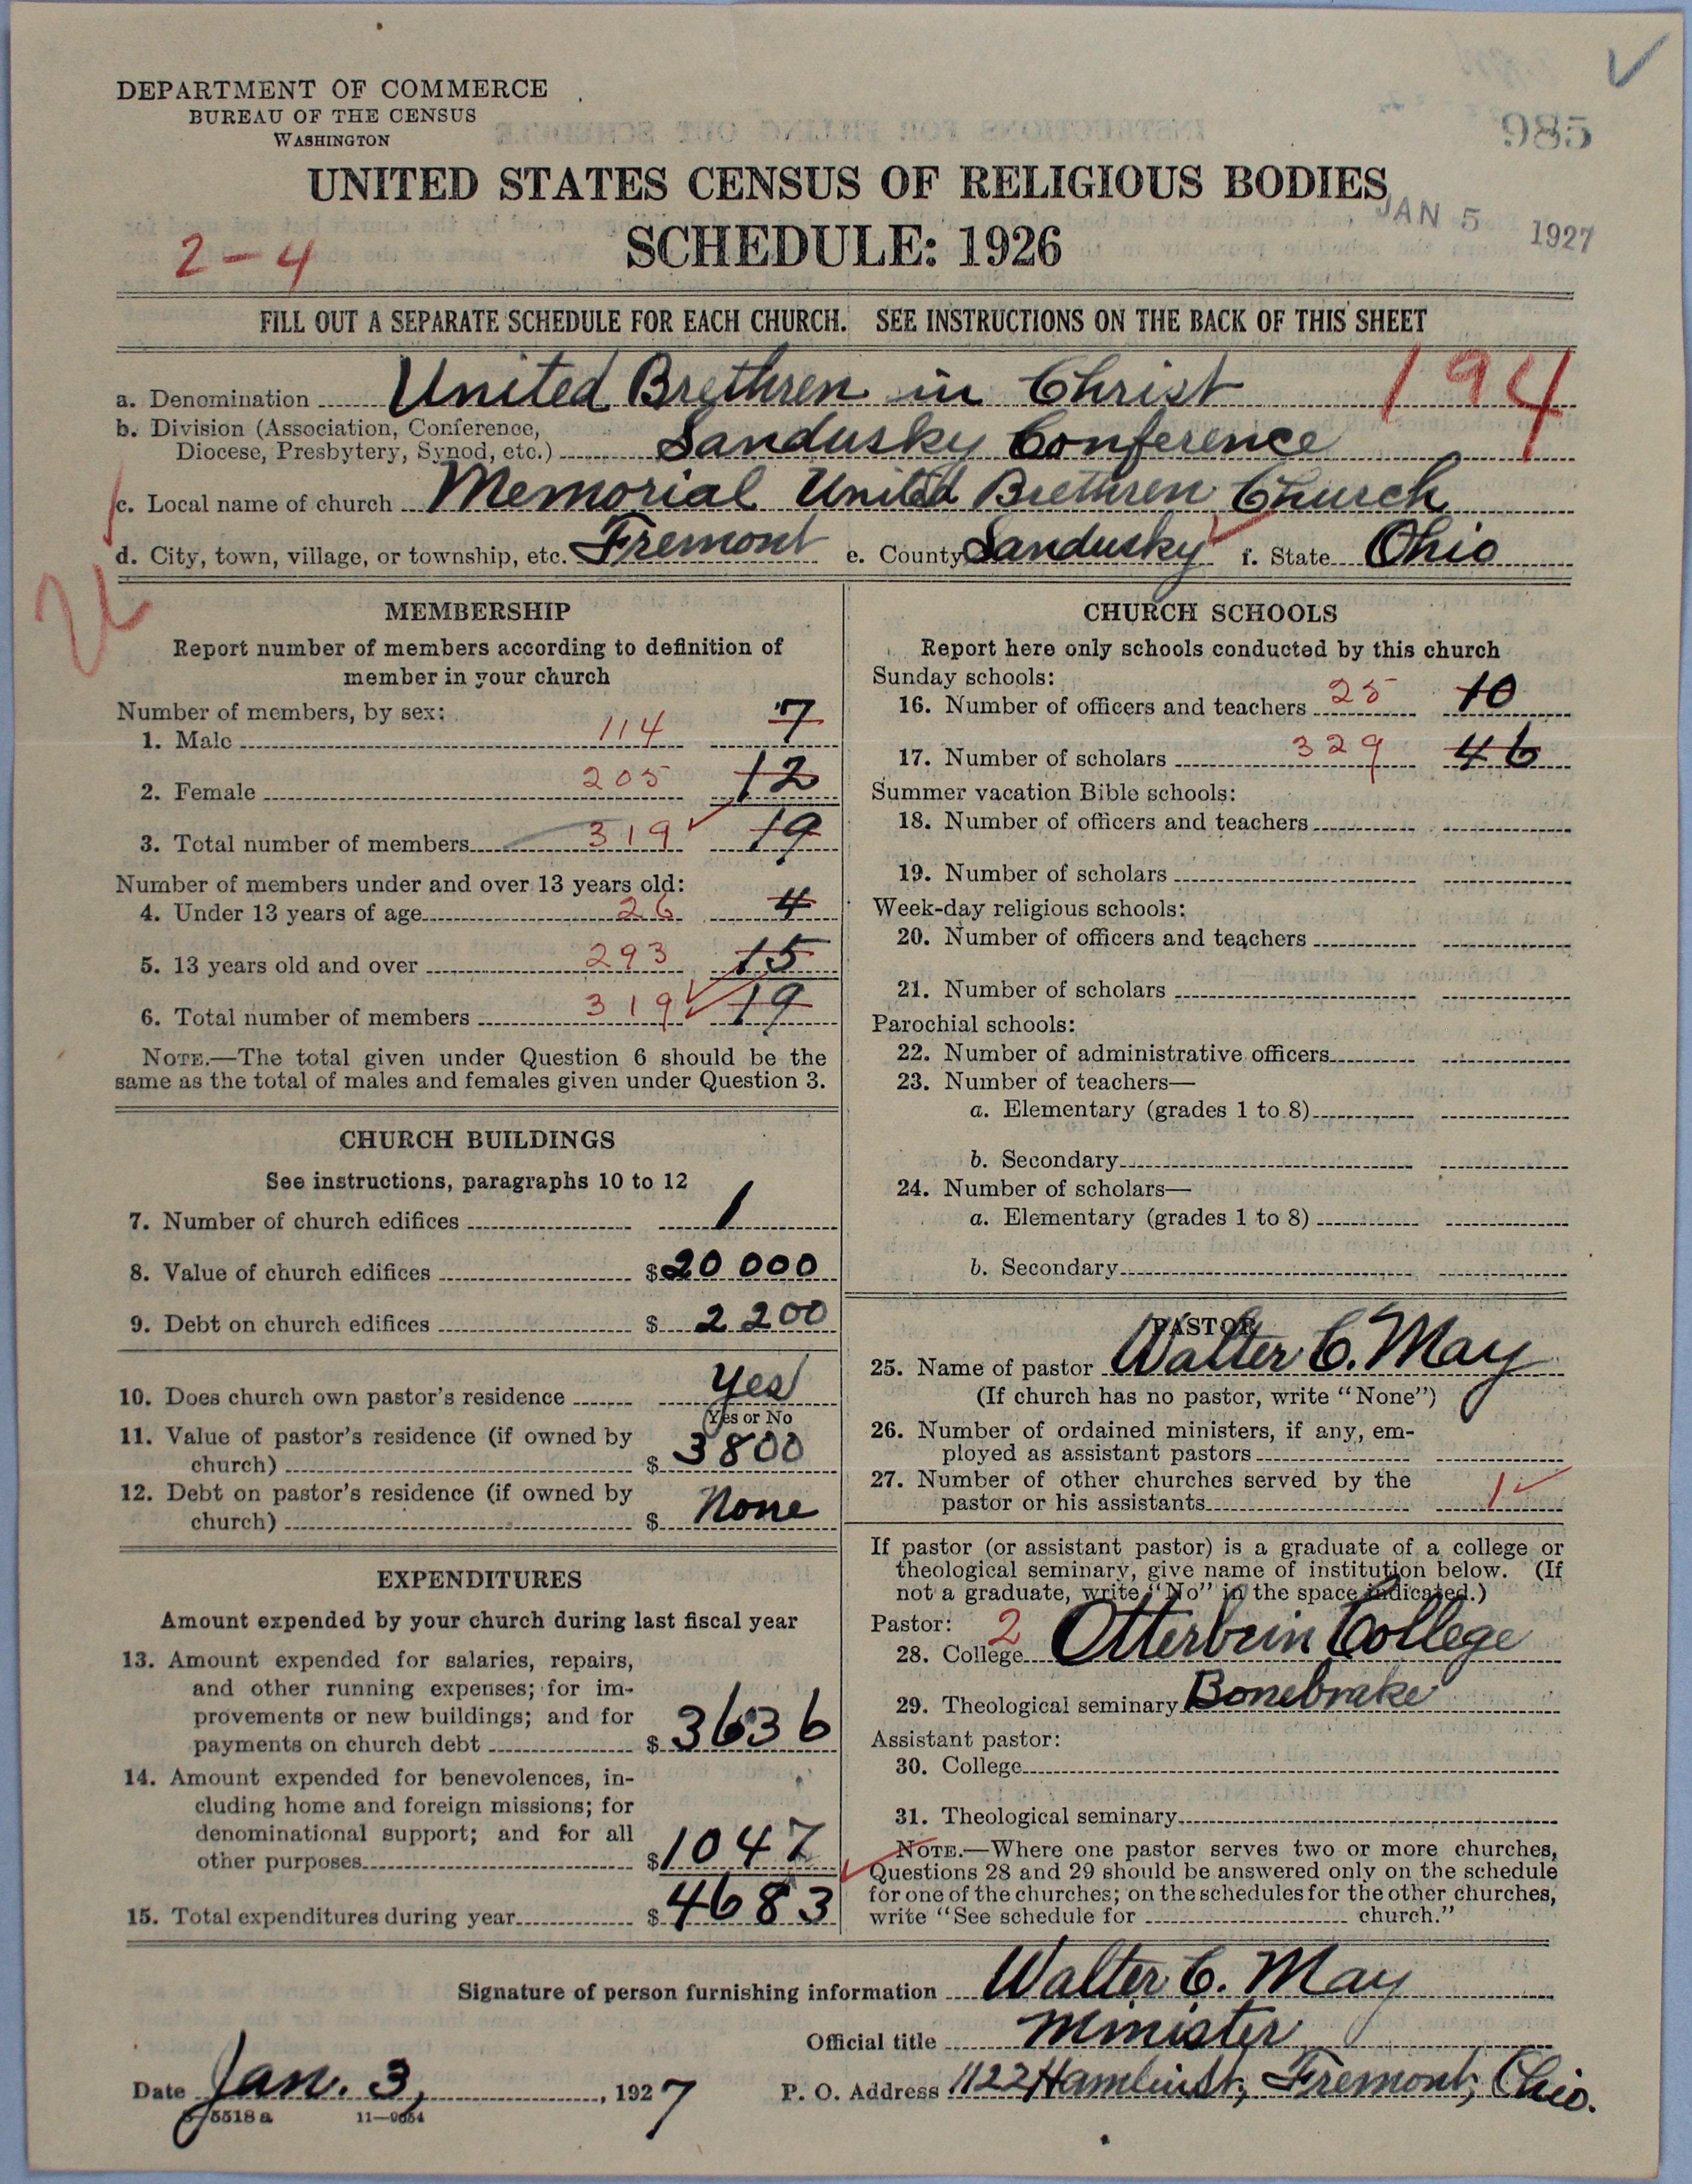 DEPARTMENT OF COMMERCE
BUREAU OF THE CENSUS
WASHINGTON
985
UNITED STATES CENSUS OF RELIGIOUS BODIES
JAN 5 1927
2-4
SCHEDULE: 1926
FILL OUT A SEPARATE SCHEDULE FOR EACH CHURCH. SEE INSTRUCTIONS ON THE BACK OF THIS SHEET
a. Denomination United Brethren in Christ 194
b. Division (Association, Conference,
Diocese, Presbytery, Synod, etc.) Sandusky Conference
c. Local name of church Memorial United Brethren Church
d. City, town, village, or township, etc. Fremont e. County Sandusky f. State Ohio
MEMBERSHIP
Report number of members according to definition of
member in your church
Number of members, by sex:
1. Male 114 7
2. Female 205 12
3. Total number of members 319 19
Number of members under and over 13 years old:
4. Under 13 years of age 26 4
5. 13 years old and over 293 15
6. Total number of members 319 19
NOTE.—The total given under Question 6 should be the
same as the total of males and females given under Question 3.
CHURCH BUILDINGS
See instructions, paragraphs 10 to 12
7. Number of church edifices 1
8. Value of church edifices $20 000
9. Debt on church edifices $ 2 200
10. Does church own pastor's residence Yes
Yes or No
11. Value of pastor's residence (if owned by
church) $ 3800
12. Debt on pastor's residence (if owned by
church) $ None
EXPENDITURES
Amount expended by your church during last fiscal year
13. Amount expended for salaries, repairs,
and other running expenses; for im-
provements or new buildings; and for
payments on church debt $ 3636
14. Amount expended for benevolences, in-
cluding home and foreign missions; for
denominational support; and for all
other purposes $1047
15. Total expenditures during year $4683
CHURCH SCHOOLS
Report here only schools conducted by this church
Sunday schools:
16. Number of officers and teachers 25 10
17. Number of scholars 329 46
Summer vacation Bible schools:
18. Number of officers and teachers
19. Number of scholars
Week-day religious schools:
20. Number of officers and teachers
21. Number of scholars
Parochial schools:
22. Number of administrative officers
23. Number of teachers—
a. Elementary (grades 1 to 8)
b. Secondary
24. Number of scholars—
a. Elementary (grades 1 to 8)
b. Secondary
PASTOR
25. Name of pastor Walter C. May
(If church has no pastor, write "None")
26. Number of ordained ministers, if any, em-
ployed as assistant pastors
27. Number of other churches served by the
pastor or his assistants 1
If pastor (or assistant pastor) is a graduate of a college or
theological seminary, give name of institution below. (If
not a graduate, write "No" in the space indicated.)
Pastor: 2
28. College Otterbein College
29. Theological seminary Bonebrake
Assistant pastor:
30. College
31. Theological seminary
NOTE.—Where one pastor serves two or more churches,
Questions 28 and 29 should be answered only on the schedule
for one of the churches; on the schedules for the other churches,
write "See schedule for church."
Signature of person furnishing information Walter C. May
Official title Minister
Date Jan. 3, 1927 P. O. Address 1122 Hamlin St, Fremont, Ohio.
5518 a 11—9054